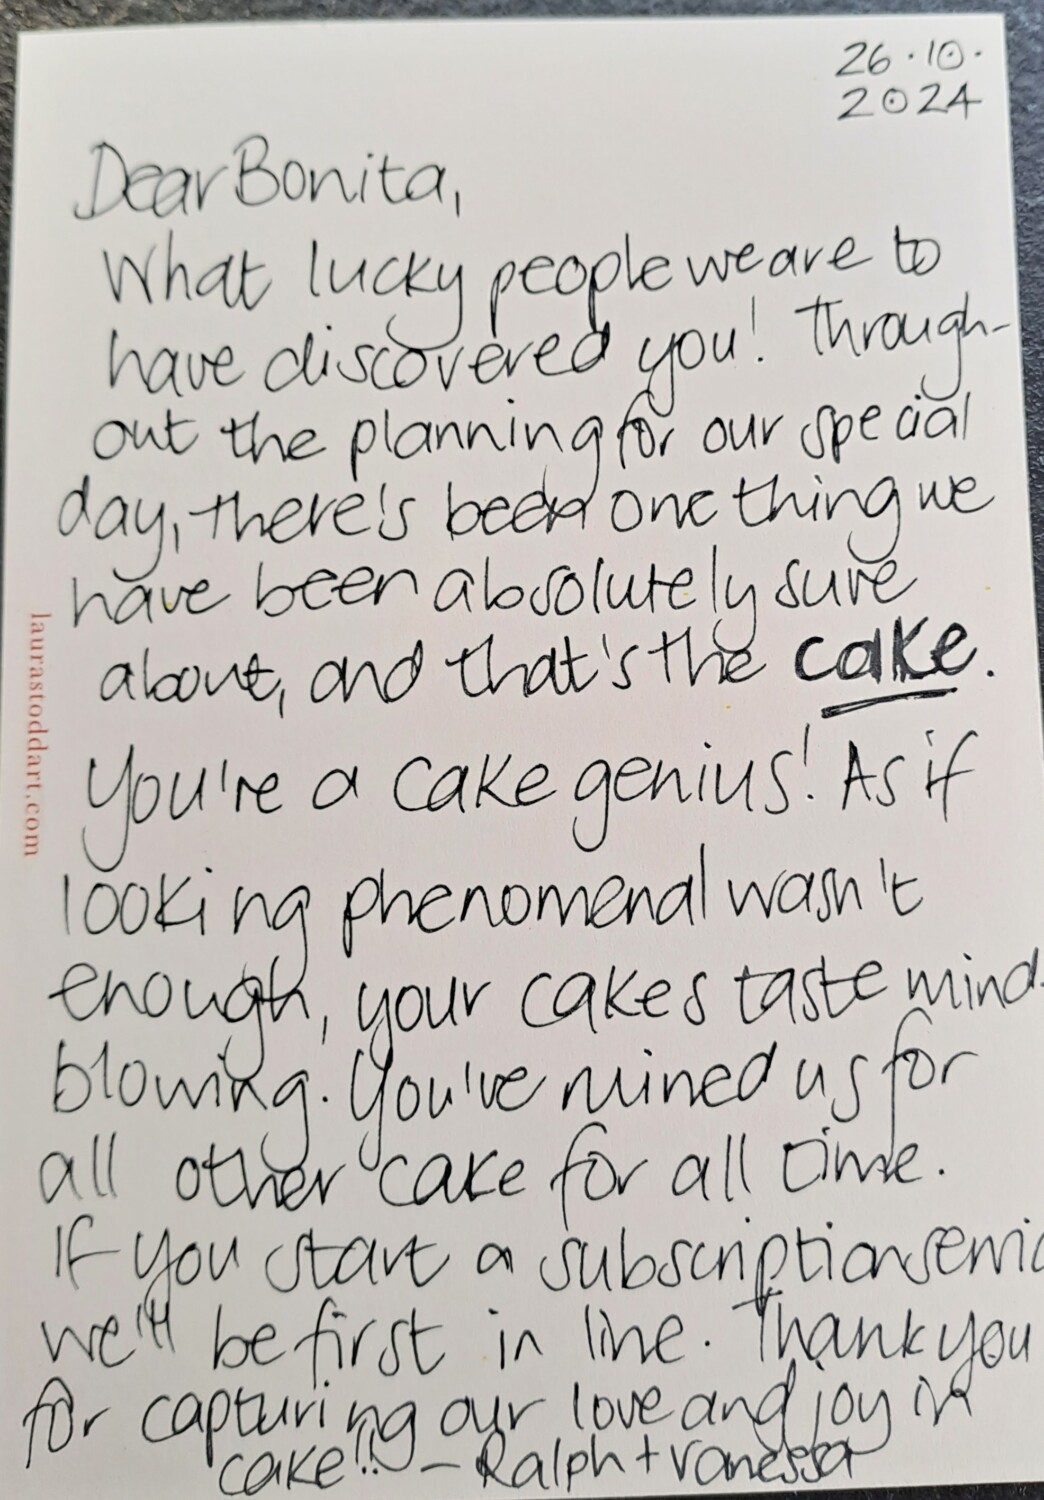 26.10.
2024
Dear Bonita,
What lucky people we are to
have discovered you! Through-
out the planning for our special
day, there's been one thing we
have been absolutely sure
about, and that's the cake.
You're a cake genius! As if
looking phenomenal wasn't
enough, your cakes taste mind-
blowing. You've ruined us for
all other cake for all time.
If you start a subscription servic
we'll be first in line. Thank you
for capturing our love and joy in
cake!! - Ralph + Vanessa
laurastoddart.com